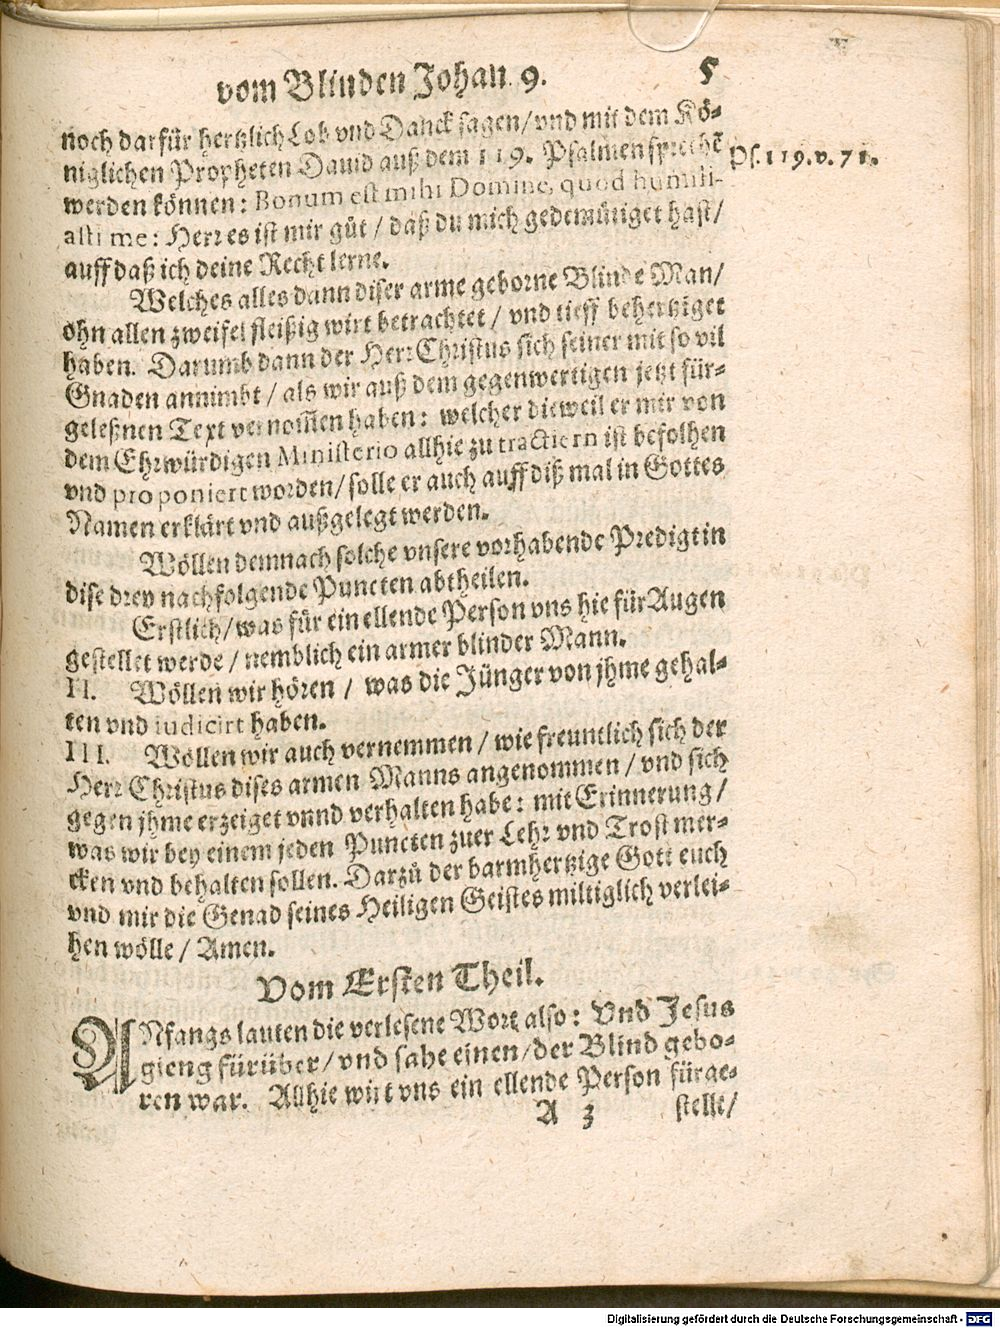 vom Blinden Johan. 9. 5
noch darfür hertzlich Lob vnd Danck sagen/ vnd mit dem Kö-
niglichen Propheten Dauid auß dem 119. Psalmen sprechē
Ps. 119. v. 71.
werden können: Bonum est mihi Domine, quod humili-
asti me: Herr es ist mir gůt / daß du mich gedemütiget hast/
auff daß ich deine Recht lerne.
Welches alles dann diser arme geborne Blinde Man/
ohn allen zweifel fleißig wirt betrachtet / vnd tieff behertziget
haben. Darumb dann der Herr Christus sich seiner mit so vil
Gnaden annimbt / als wir auß dem gegenwertigen jetzt für-
geleßnen Text vernom̃en haben: welcher dieweil er mir von
dem Ehrwürdigen Ministerio allhie zu tractiern ist befolhen
vnd proponiert worden/ solle er auch auff diß mal in Gottes
Namen erklärt vnd außgelegt werden.
Wöllen demnach solche vnsere vorhabende Predigt in
dise drey nachfolgende Puncten abtheilen.
Erstlich/ was für ein ellende Person vns hie für Augen
gestellet werde / nemblich ein armer blinder Mann.
II. Wöllen wir hören / was die Jünger von jhme gehal-
ten vnd iudicirt haben.
III. Wöllen wir auch vernemmen / wie freuntlich sich der
Herr Christus dises armen Manns angenommen / vnd sich
gegen jhme erzeiget vnnd verhalten habe: mit Erinnerung/
was wir bey einem jeden Puncten zuer Lehr vnd Trost mer-
cken vnd behalten sollen. Darzů der barmhertzige Gott euch
vnd mir die Genad seines Heiligen Geistes miltiglich verlei-
hen wölle / Amen.
Vom Ersten Theil.
ANfangs lauten die verlesene Wort also: Vnd Jesus
gieng fürüber/ vnd sahe einen/ der Blind gebo-
ren war. Allhie wirt vns ein ellende Person fürge-
A 3 stellt/
Digitalisierung gefördert durch die Deutsche Forschungsgemeinschaft - DFG